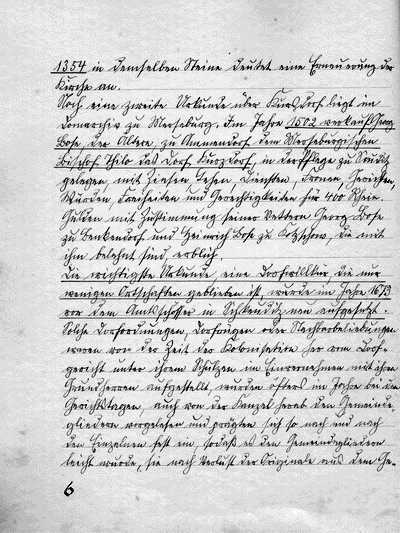 1354 in demselben Steine deutet eine Erneuerung der
Kirche an.
Noch eine zweite Urkunde über Kursdorf liegt im
Domarchiv zu Merseburg. Im Jahre 1502 verkauft Georg
Bose, der Ältere, zu Ammendorf dem Merseburgischen
Bischof Thilo das Dorf Kurzdorf, in der Pflege zu
gelegen, mit Zinsen, Lehen, Diensten, Fronen, Gerichten,
Würden, Freiheiten und Gerechtigkeiten für 400 Rhein.
Gulden mit Zustimmung seiner Vettern Georg Bose
zu Benkendorf und Heinrich Bose zu Kötzschen, die mit
ihm belehnt sind, erblich.
Die wichtigste Urkunde, eine Dorfwillkür, die nur
wenigen Ortschaften geblieben ist, wurde im Jahre
vor dem Amtsschösser in Schkeuditz neu aufgesetzt.
Solche Dorfordnungen, Dorfrügen oder Nachbarbeliebungen
waren von der Zeit der Kolonisation her vom Dorf-
gericht unter ihrem Schulzen im Einvernehmen mit ihren
Grundherren aufgestellt, wurden öfters im Jahre bei den
Gerichtstagen, auch von der Kanzel herab den Gemeinde-
gliedern vorgelesen und prägten sich so nach und nach
den Einzelnen fest ein, sodaß es den Gemeindegliedern
leicht wurde, sie nach Verlust der Originale aus dem Ge-
6